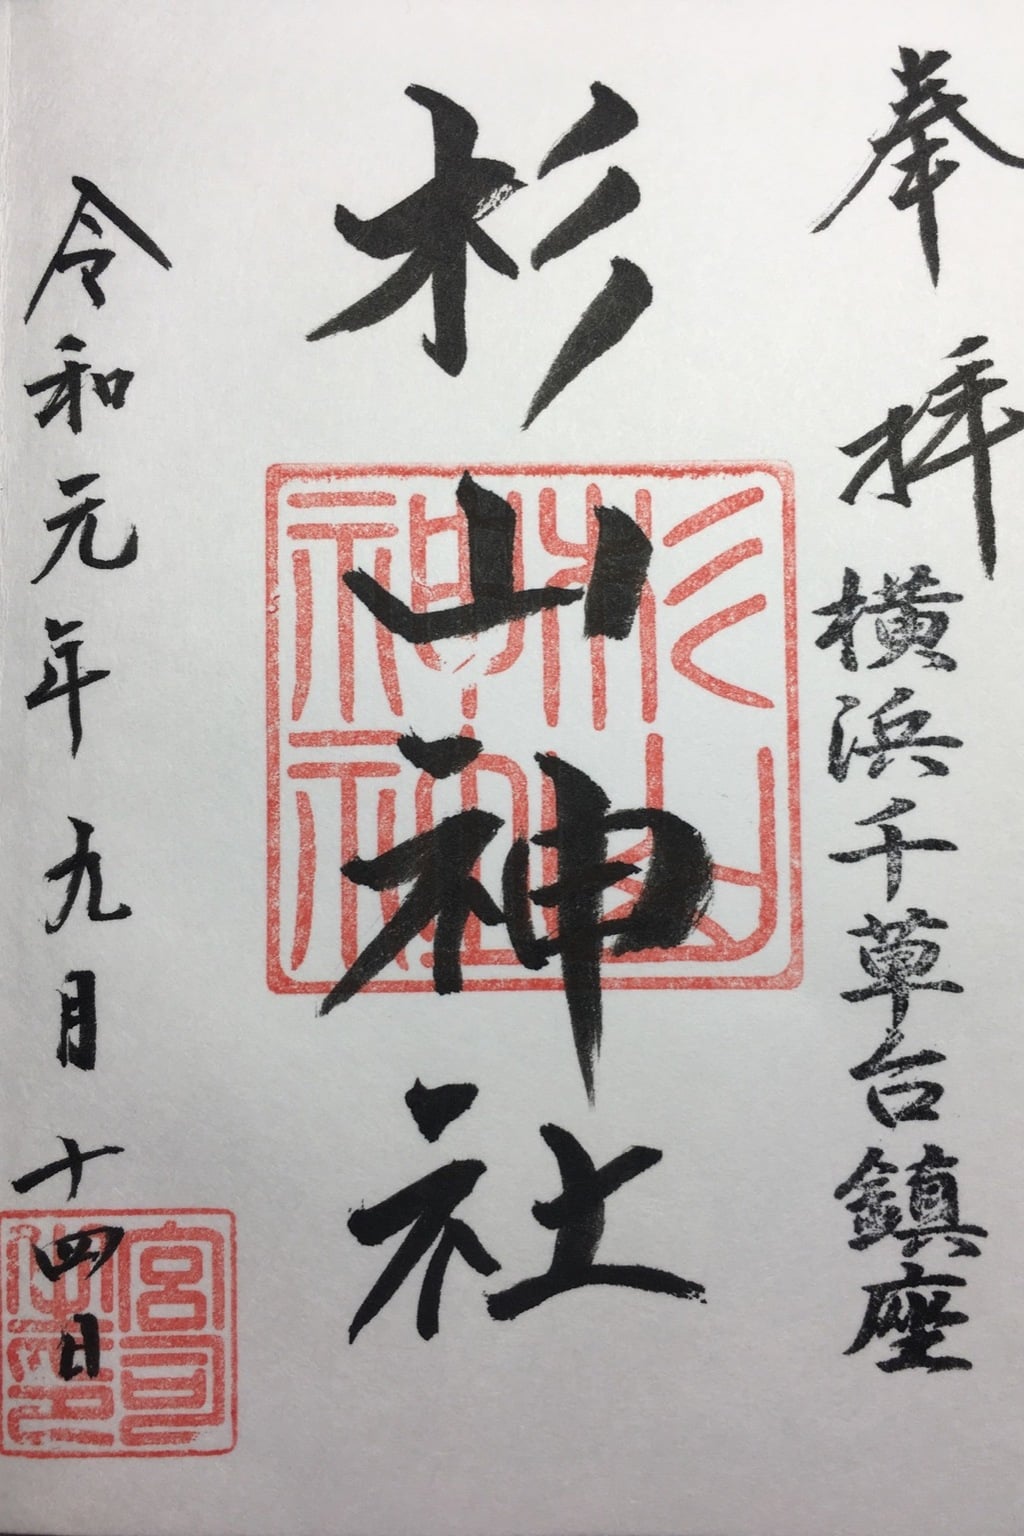 奉拝
横浜千草台鎮座
杉山神社
令和元年九月十四日
杉山
神社
宮司
之印